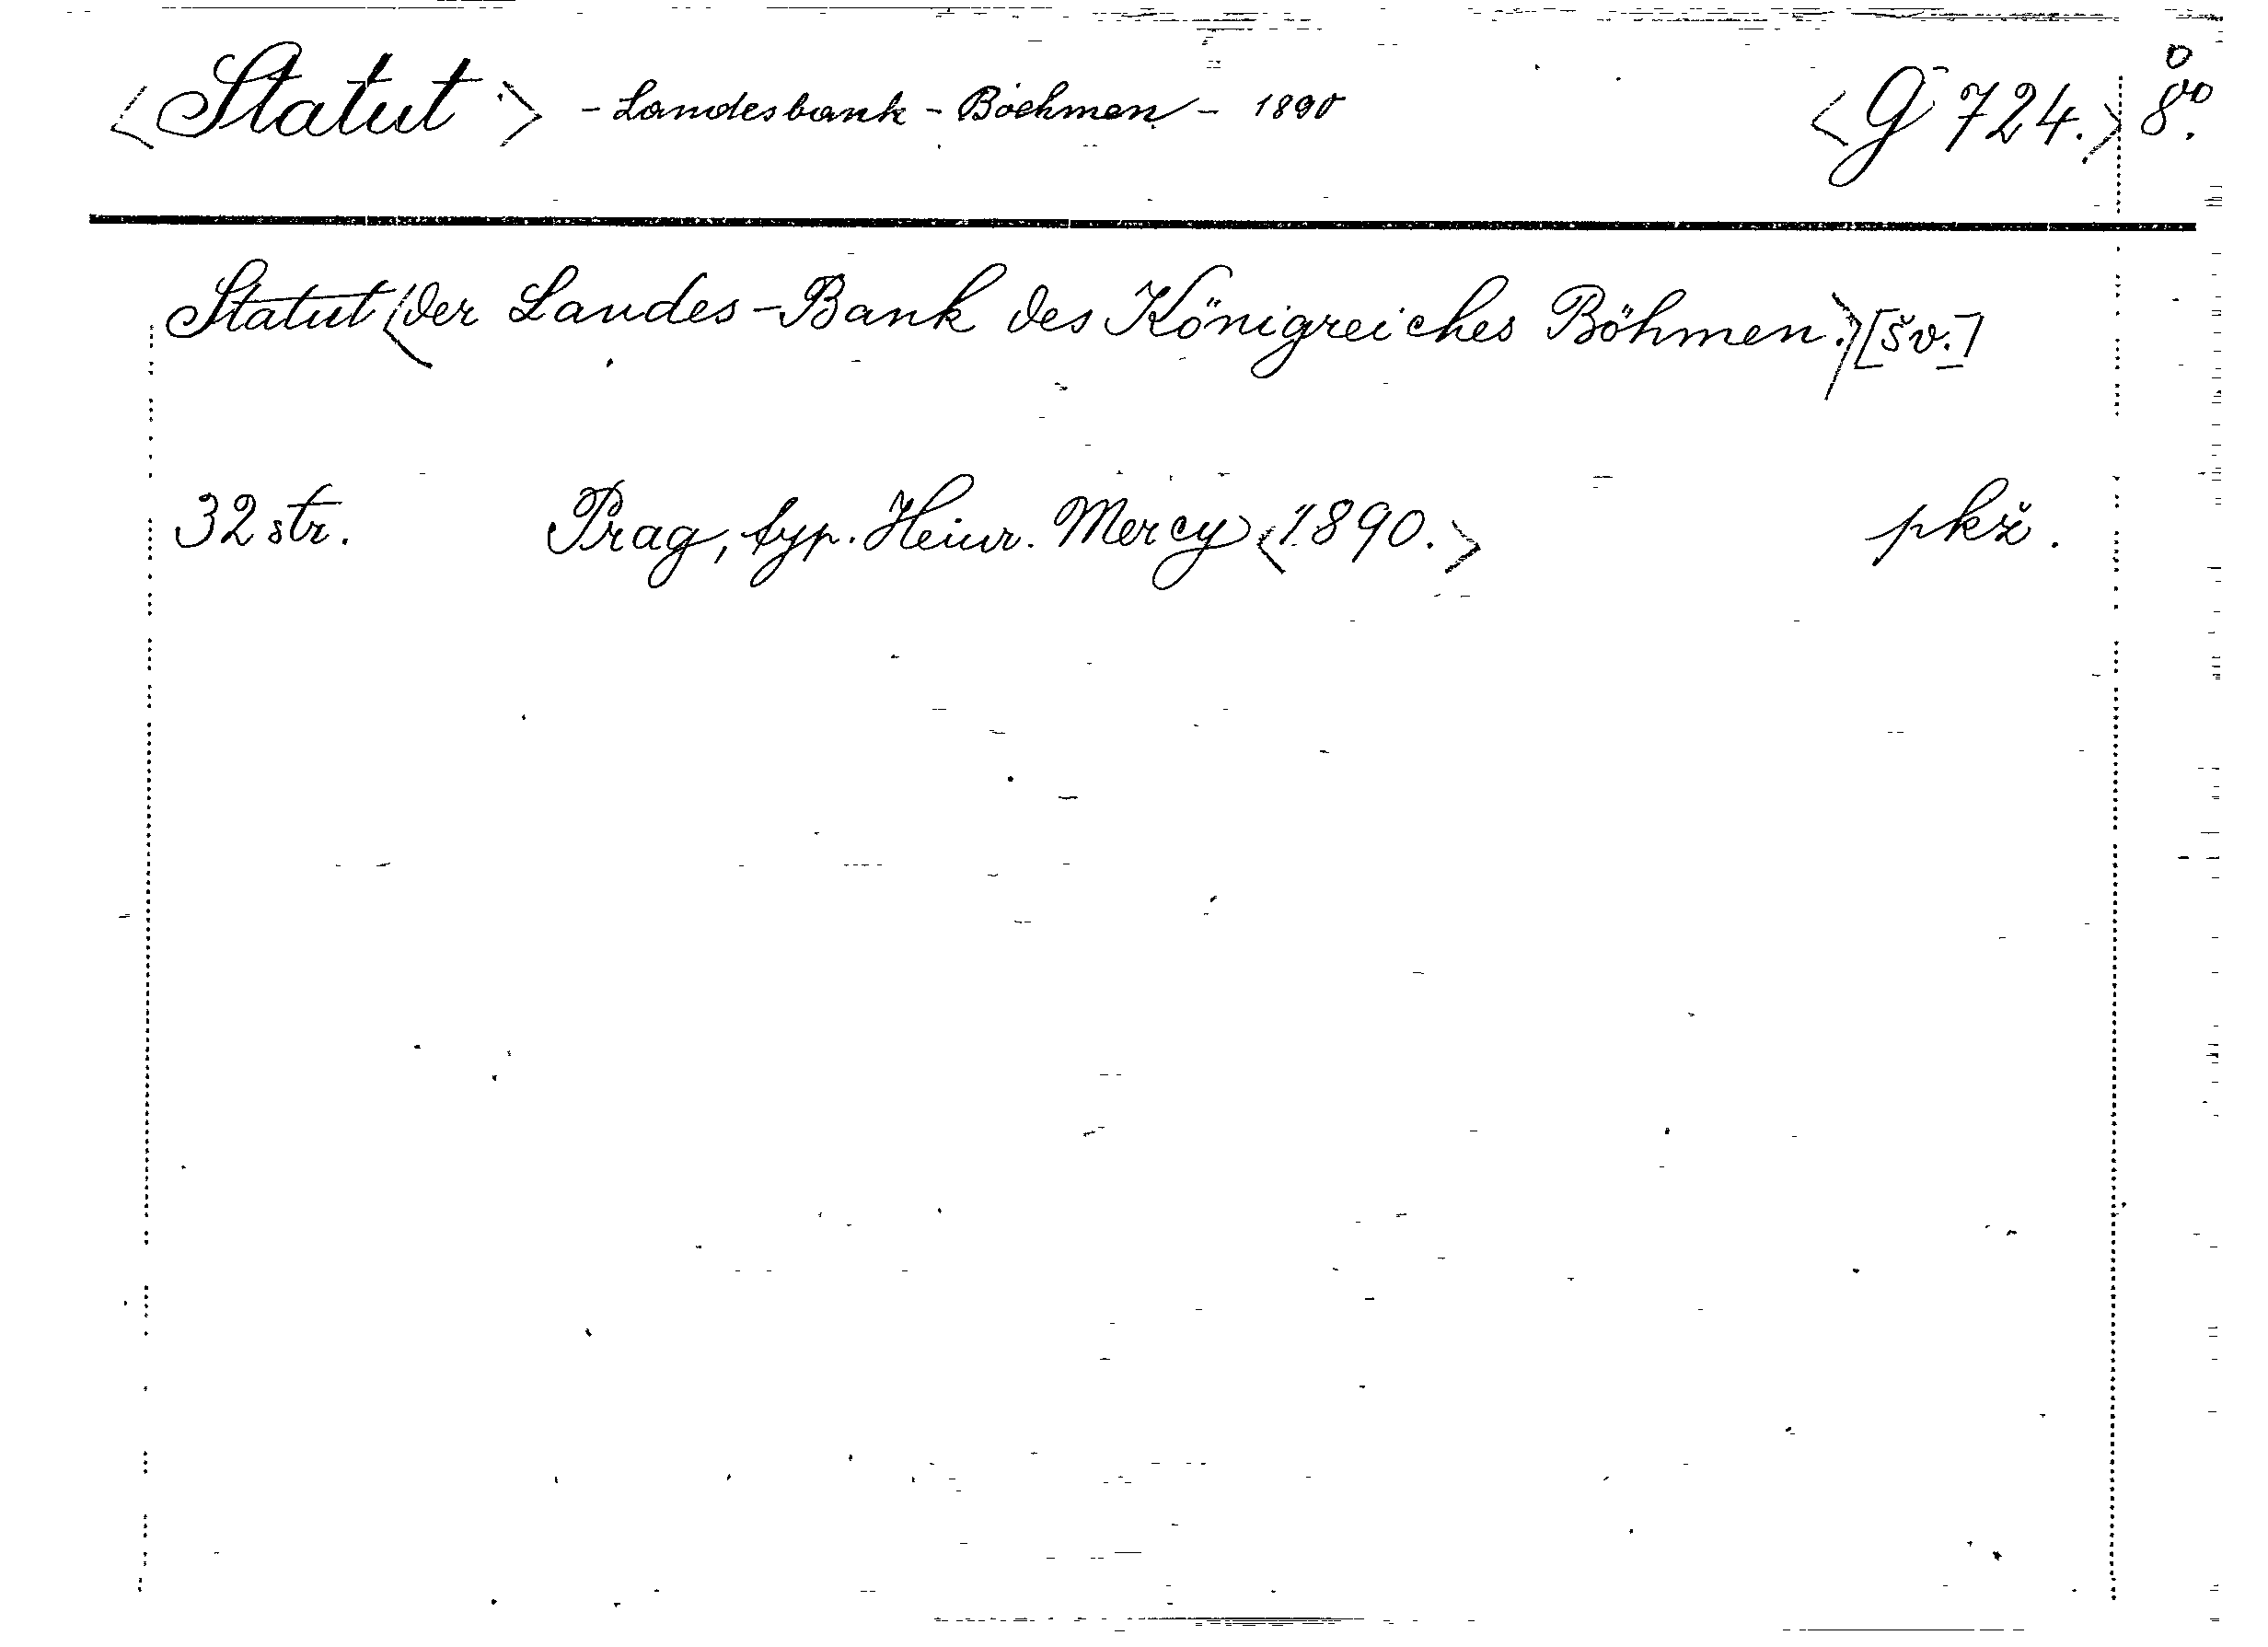 <Statut> - Landesbank - Boehmen - 1890 <G 724.> 8°.
Statut <der Landes-Bank des Königreiches Böhmen.> [šv.]
32 str. Prag, typ. Heinr. Mercy <1890.> pkž.